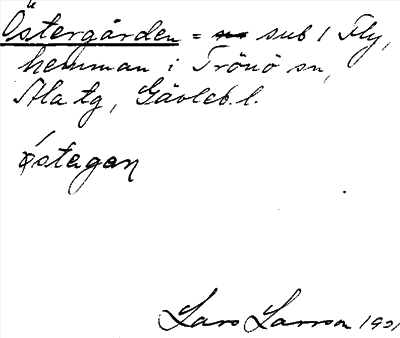 Östergården = sub / Fly,
hemman i Trönö sn,
Ala tg, Gävleb. l.
östagaɳ
Lars Larsson 1921